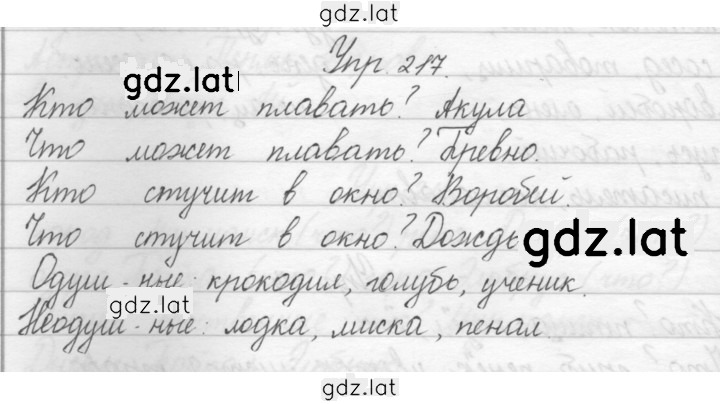 gdz.lat
Упр. 217.
gdz.lat
Кто может плавать? Акула
Что может плавать? Бревно.
Кто стучит в окно? Воробей.
Что стучит в окно? Дождь
gdz.lat
Одуш-ные: крокодил, голубь, ученик.
gdz.lat
Неодуш-ные: лодка, миска, пенал.
gdz.lat